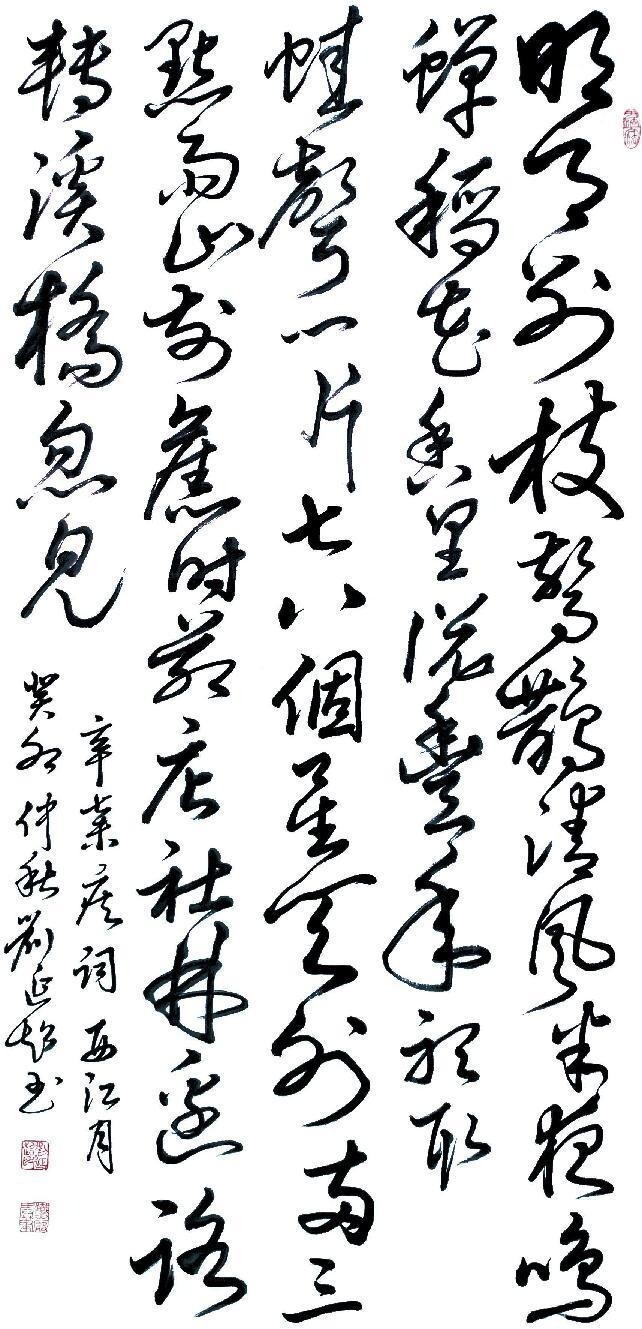 明月別枝驚鵲清風半夜鳴
蟬稻花香里說豐年聽取
蛙聲一片七八個星天外兩三
點雨山前舊時茅店社林邊路
轉溪橋忽見
辛棄疾詞西江月
癸卯仲秋劉延超书